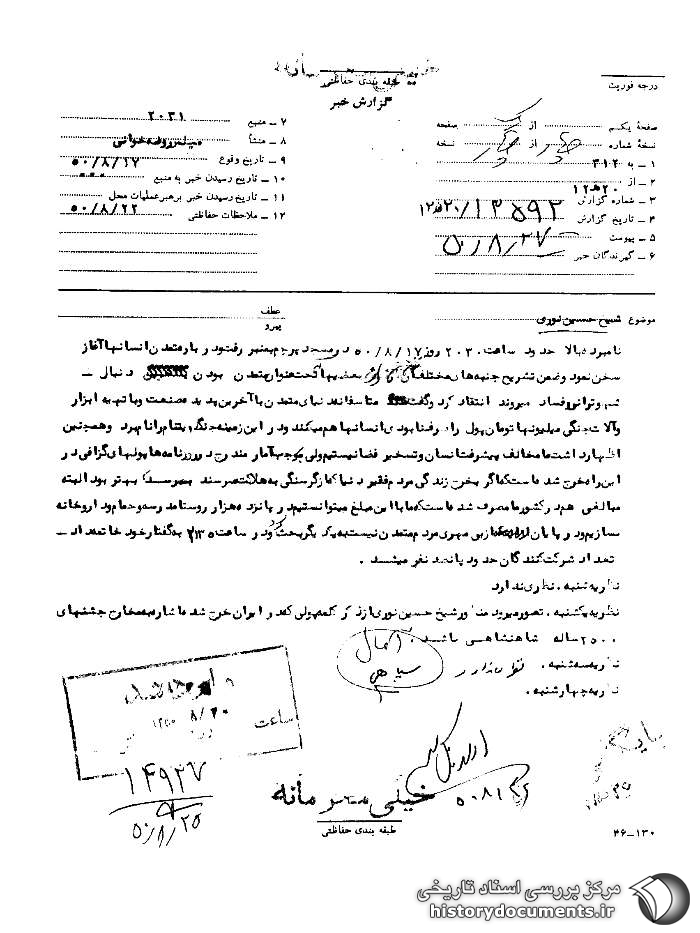 طبقه بندی حفاظتی
گزارش خبر
درجه فوریت
صفحهٔ یکم از صفحه
نسخهٔ شماره از نسخه
۱ ـ به ۳۱۲
۲ ـ از ۲۰ هـ ۱۲
۳ ـ شماره گزارش ۱۲هـ۲۰/۱۳۵۹۲
۴ ـ تاریخ گزارش ۵۰/۸/۲۷
۵ ـ پیوست
۶ ـ گیرندگان خبر
۷ ـ منبع ۲۰۳۱
۸ ـ منشأ
۹ ـ تاریخ وقوع ۵۰/۸/۱۷
۱۰ ـ تاریخ رسیدن خبر به منبع
۱۱ ـ تاریخ رسیدن خبر برهبر عملیات محل
۱۲ ـ ملاحظات حفاظتی ۵۰/۸/۲۲
موضوع شیخ حسین نوری
عطف
پیرو
نامبرده بالا حدود ساعت ۲۰۳۰ روز ۵۰/۸/۱۷ در مسجد بمنبر رفت و درباره تمدن انسانها آغاز
سخن نمود و ضمن تشریح جنبه‌های مختلف آن از بعضیها تحت عنوان متمدن بودن دنبال ـ
شهوترانی و فساد میروند انتقاد کرد و گفت متاسفانه دنیای متمدن با آخرین پدیده صنعت و باتم به ابزار
وآلات جنگی میلیونها تومان پول را در فنا بودی انسانها هم میکند و در این زمینه جنگ ویتنام را نام برد و همچنین
اظهار داشت ما مخالف پیشرفت انسان و تسخیر فضا نیستیم ولی بموجب آمار مندرج در روزنامه‌ها پولهای گزافی در
این راه خرج شده است که اگر بخرج زندگی مردم فقیر دنیا که از گرسنگی به هلاکت میرسند بهتر بود البته
مبالغی هم در کشور ما مصرف شده است که ما با این مبلغ میتوانستیم در پانزده هزار روستا مدرسه و حمام و داروخانه
بسازیم و در پایان از بی مهری مردم متمدن نسبت به یکدیگر بحث کرد و در ساعت ۲۱۳۵ به گفتار خود خاتمه داد ـ
تعداد شرکت کنندگان حدود پانصد نفر میشد .
نظریه شنبه . نظری ندارد
نظریه یکشنبه . تصور میرود منظور شیخ حسین نوری از ذکر کلمه پولی که در ایران خرج شده اشاره به مخارج جشنهای
۲۵۰۰ ساله شاهنشاهی باشد .
نظریه سه‌شنبه . نظری ندارد
نظریه چهارشنبه .
ساعت
۸/۳۰
۱۴۹۲۷
۵۰/۸/۲۵
خیلی محرمانه
طبقه بندی حفاظتی
۴۶ـ۱۳۰
مرکز بررسی اسناد تاریخی
historydocuments.ir